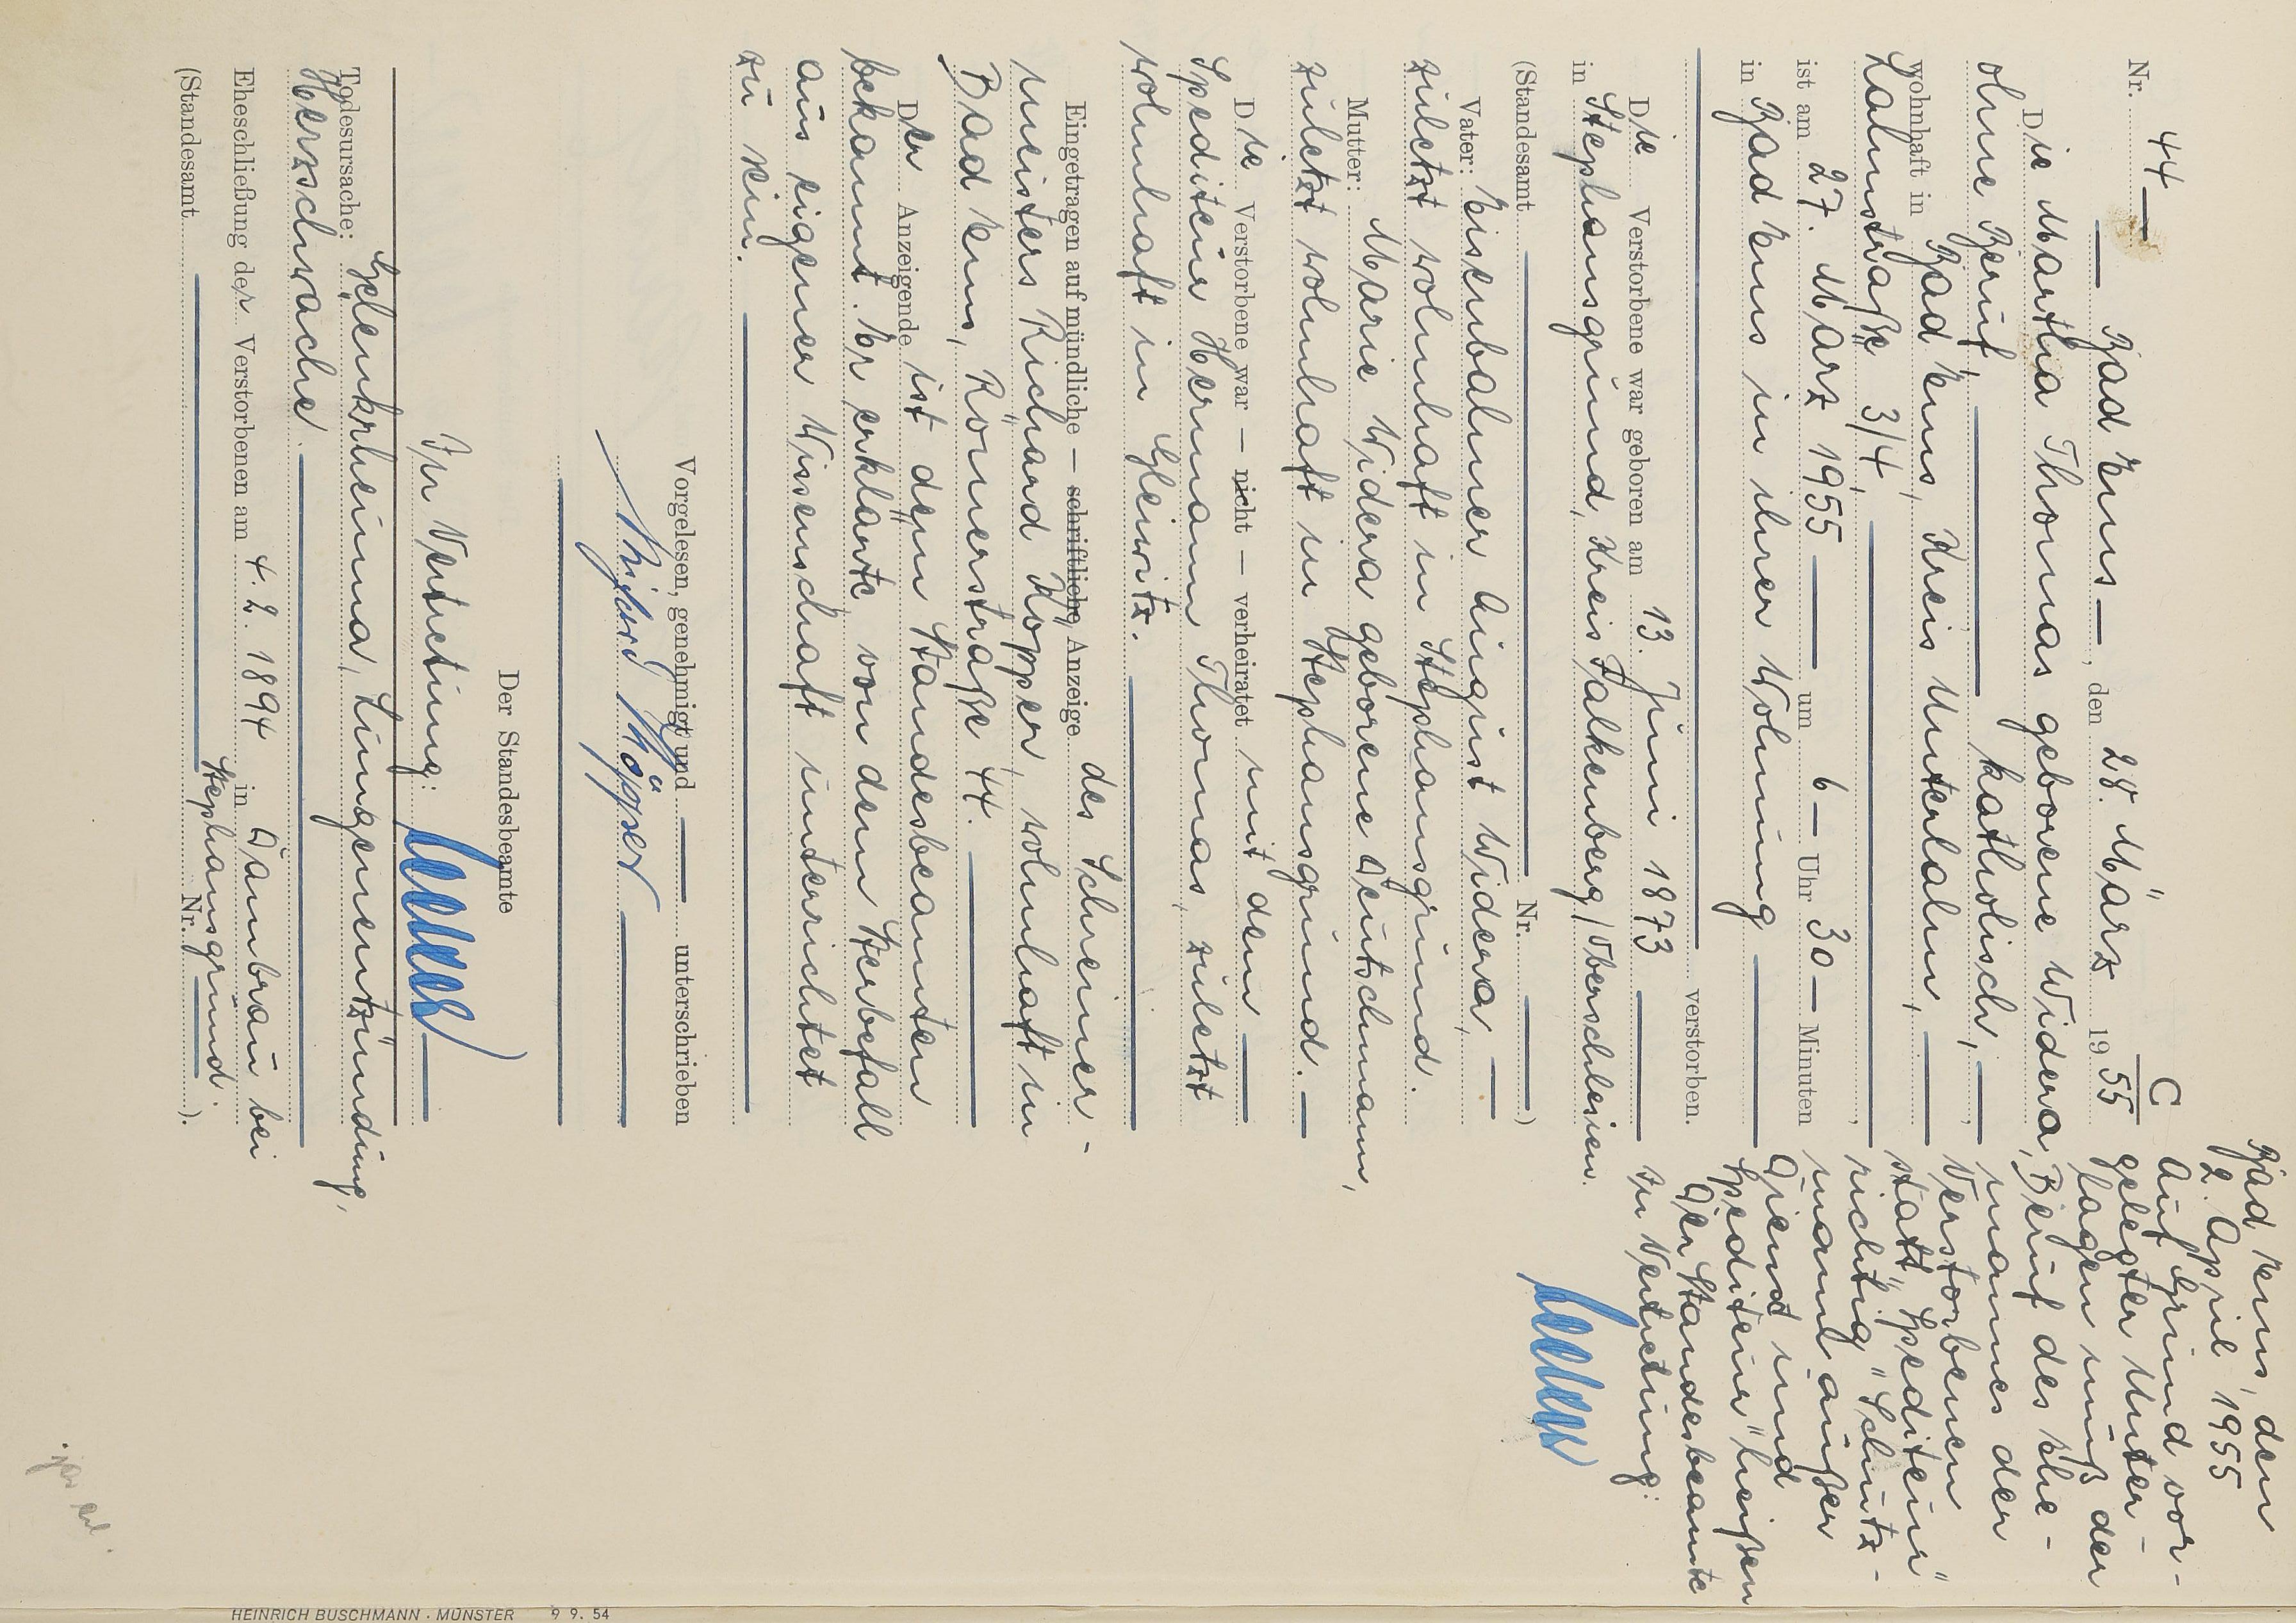 Nr. 44 — C
— Bad Ems —, den 28. März 1955
Die Martha Thomas geborene Widera,
ohne Beruf — katholisch, —,
wohnhaft in Bad Ems, Kreis Unterlahn, —
Lahnstraße 3/4, —,
ist am 27. März 1955 — um 6 — Uhr 30 — Minuten
in Bad Ems in ihrer Wohnung —
— verstorben.
Die Verstorbene war geboren am 13. Juni 1873 —
in Stephansgrund, Kreis Falkenberg/Oberschlesien.
(Standesamt — Nr. —)
Vater: Eisenbahner August Widera, —
zuletzt wohnhaft in Stephansgrund.
Mutter: Marie Widera geborene Deutschmann,
zuletzt wohnhaft in Stephansgrund. —
Die Verstorbene war — nicht — verheiratet mit dem —
Spediteur Hermann Thomas, zuletzt
wohnhaft in Gleiwitz. —
Eingetragen auf mündliche — schriftliche Anzeige des Schreiner-
meisters Richard Köpper, wohnhaft in
Bad Ems, Römerstraße 44. —
Der Anzeigende ist dem Standesbeamten
bekannt. Er erklärte von dem Sterbefall
aus eigener Wissenschaft unterrichtet
zu sein. —
Vorgelesen, genehmigt und — unterschrieben
Richard Köpper —
Der Standesbeamte
In Vertretung:
Todesursache: Gelenkrheuma, Lungenentzündung,
Herzschwäche. —
Eheschließung der Verstorbenen am 4. 2. 1894 in Dambrau bei
Stephansgrund.
(Standesamt — Nr. —).
Bad Ems, den
2. April 1955
Auf Grund vor-
gelegter Unter-
lagen muß der
Beruf des Ehe-
mannes der
Verstorbenen
statt "Spediteur"
richtig "Schutz-
mann außer
Dienst und
Spediteur" heißen
Der Standesbeamte
In Vertretung:
HEINRICH BUSCHMANN · MÜNSTER 9 9. 54